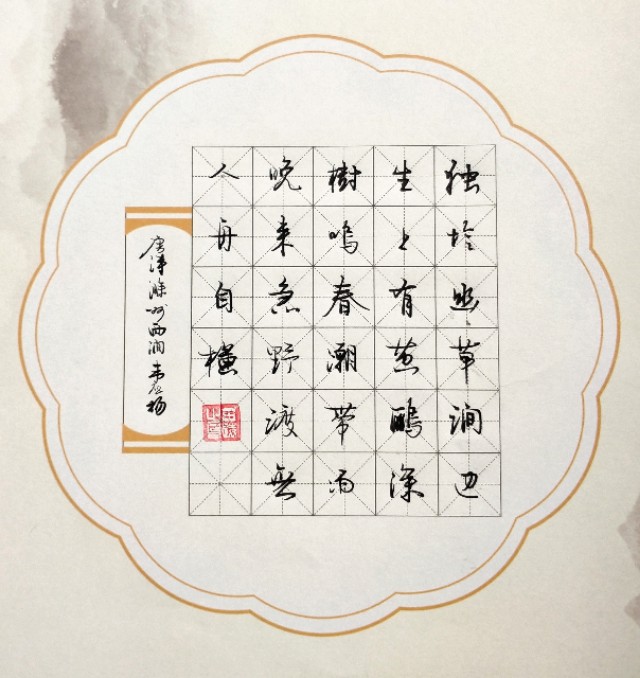 独怜幽草涧边
生上有黄鹂深
樹鸣春潮带雨
晚来急野渡無
人舟自横
唐诗滁州西涧韦应物